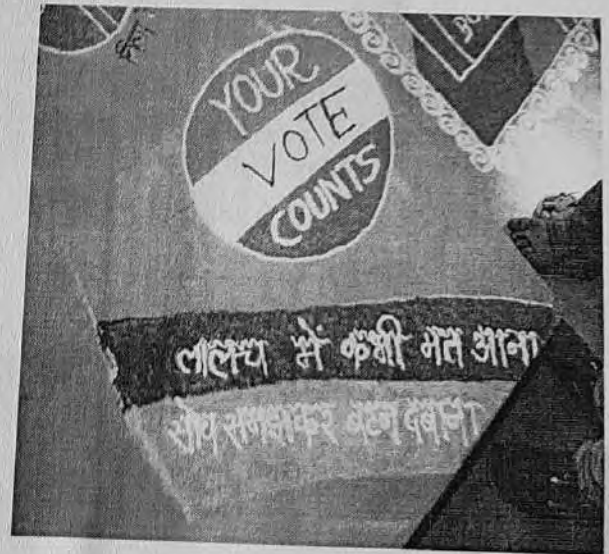 YOUR
VOTE
COUNTS
लालच में कभी मत आना
सोच समझकर बटन दबाना